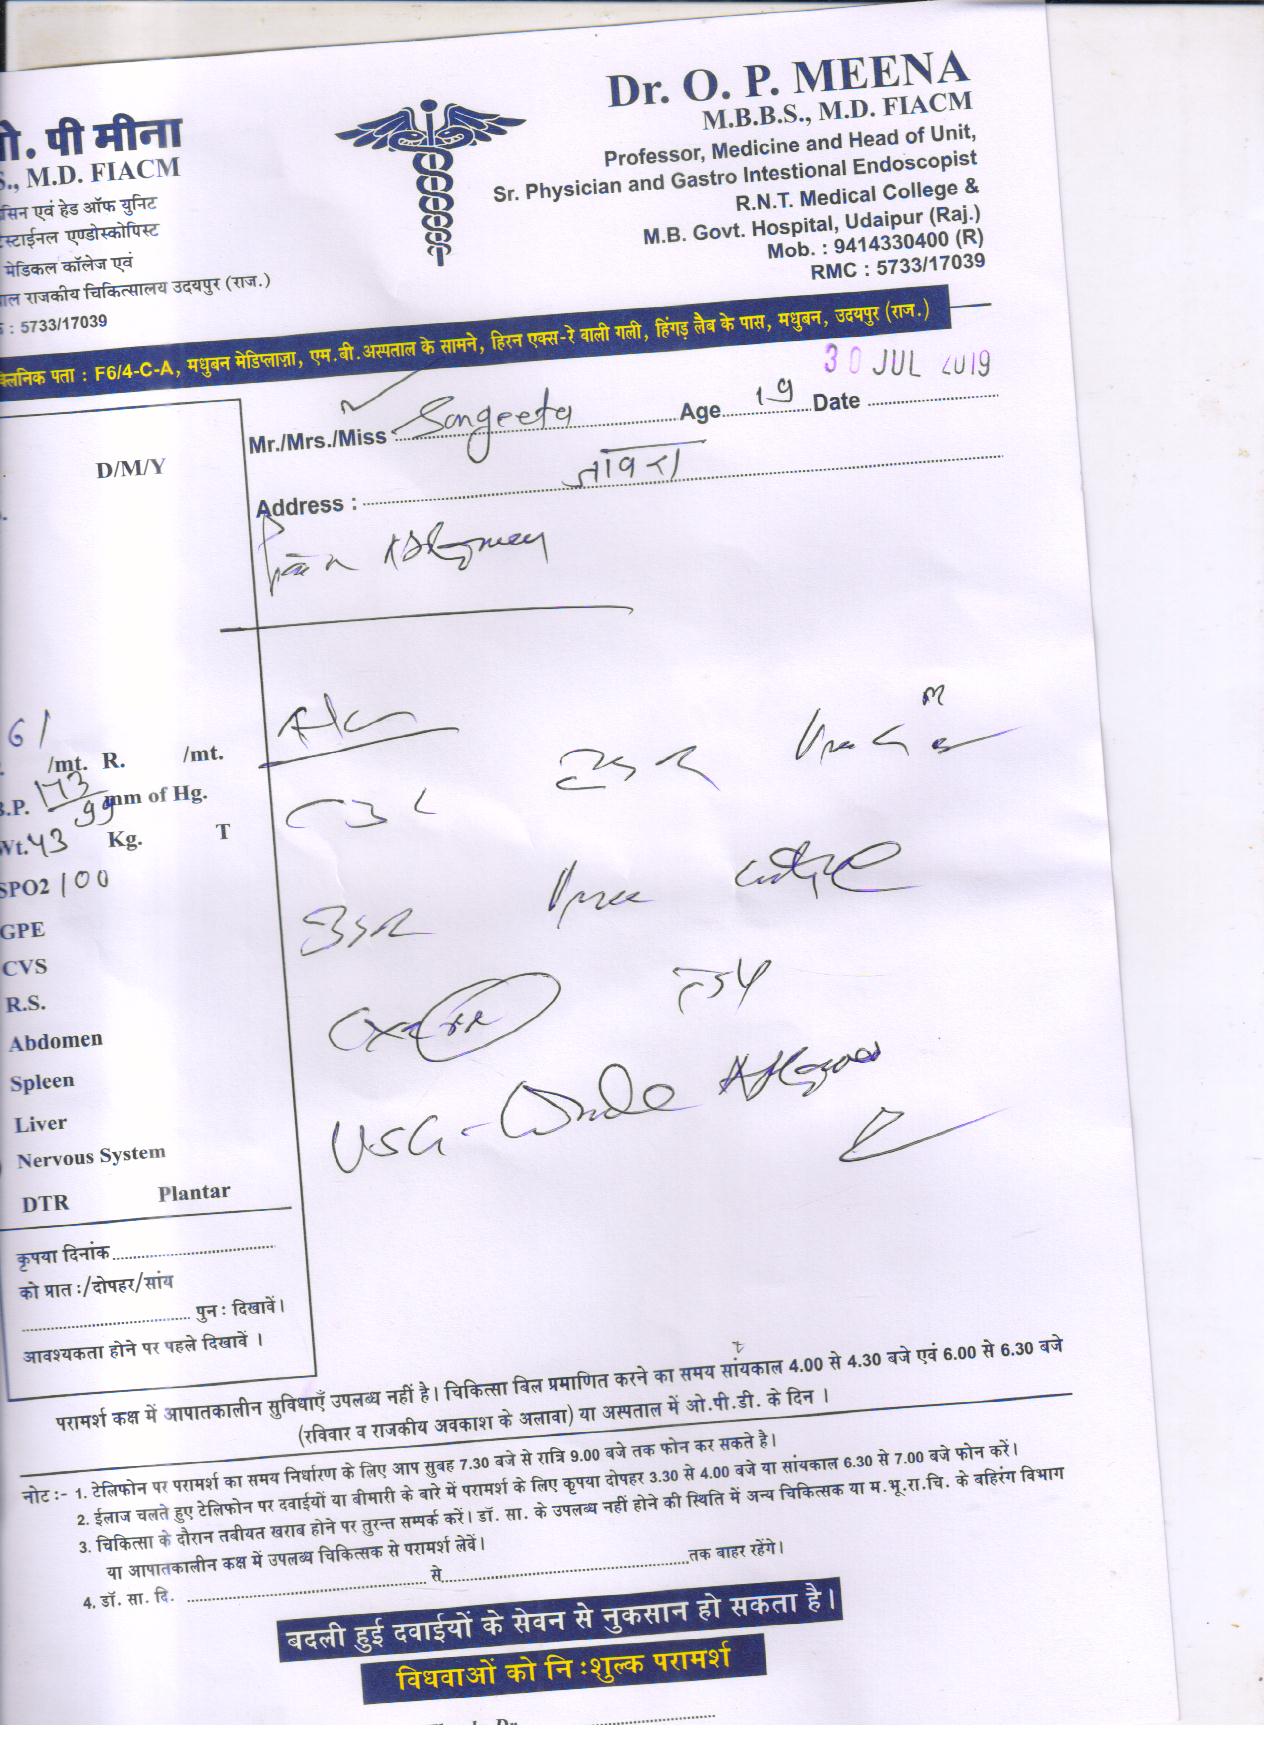 Dr. O. P. MEENA
M.B.B.S., M.D. FIACM
Professor, Medicine and Head of Unit,
Sr. Physician and Gastro Intestional Endoscopist
R.N.T. Medical College &
M.B. Govt. Hospital, Udaipur (Raj.)
Mob. : 9414330400 (R)
RMC : 5733/17039
पी मीना
M.D. FIACM
एवं हेड ऑफ युनिट
एण्डोस्कोपिस्ट
मेडिकल कॉलेज एवं
राजकीय चिकित्सालय उदयपुर (राज.)
: 5733/17039
क्लिनिक पता : F6/4-C-A, मधुबन मेडिप्लाज़ा, एम.बी.अस्पताल के सामने, हिरन एक्स-रे वाली गली, हिंगड़ लैब के पास, मधुबन, उदयपुर (राज.)
30 JUL 2019
Mr./Mrs./Miss Sangeeta Age 19 Date
Address : जावरा
Pain Abdomen
D/M/Y
61
/mt. R. /mt.
B.P. 173/99 mm of Hg.
Wt. 43 Kg. T
SPO2 100
GPE
CVS
R.S.
Abdomen
Spleen
Liver
Nervous System
DTR Plantar
CBC
ESR
Urine
TSH
USG - Whole Abdomen
कृपया दिनांक
को प्रात :/दोपहर/सांय
पुन : दिखावें।
आवश्यकता होने पर पहले दिखावें ।
परामर्श कक्ष में आपातकालीन सुविधाएँ उपलब्ध नहीं है। चिकित्सा बिल प्रमाणित करने का समय सांयकाल 4.00 से 4.30 बजे एवं 6.00 से 6.30 बजे
(रविवार व राजकीय अवकाश के अलावा) या अस्पताल में ओ.पी.डी. के दिन ।
नोट :- 1. टेलिफोन पर परामर्श का समय निर्धारण के लिए आप सुबह 7.30 बजे से रात्रि 9.00 बजे तक फोन कर सकते है।
2. ईलाज चलते हुए टेलिफोन पर दवाईयों या बीमारी के बारे में परामर्श के लिए कृपया दोपहर 3.30 से 4.00 बजे या सांयकाल 6.30 से 7.00 बजे फोन करें।
3. चिकित्सा के दौरान तबीयत खराब होने पर तुरन्त सम्पर्क करें। डॉ. सा. के उपलब्ध नहीं होने की स्थिति में अन्य चिकित्सक या म.भू.रा.चि. के बहिरंग विभाग
या आपातकालीन कक्ष में उपलब्ध चिकित्सक से परामर्श लेवें।
4. डॉ. सा. दि. से तक बाहर रहेंगे।
बदली हुई दवाईयों के सेवन से नुकसान हो सकता है।
विधवाओं को नि :शुल्क परामर्श